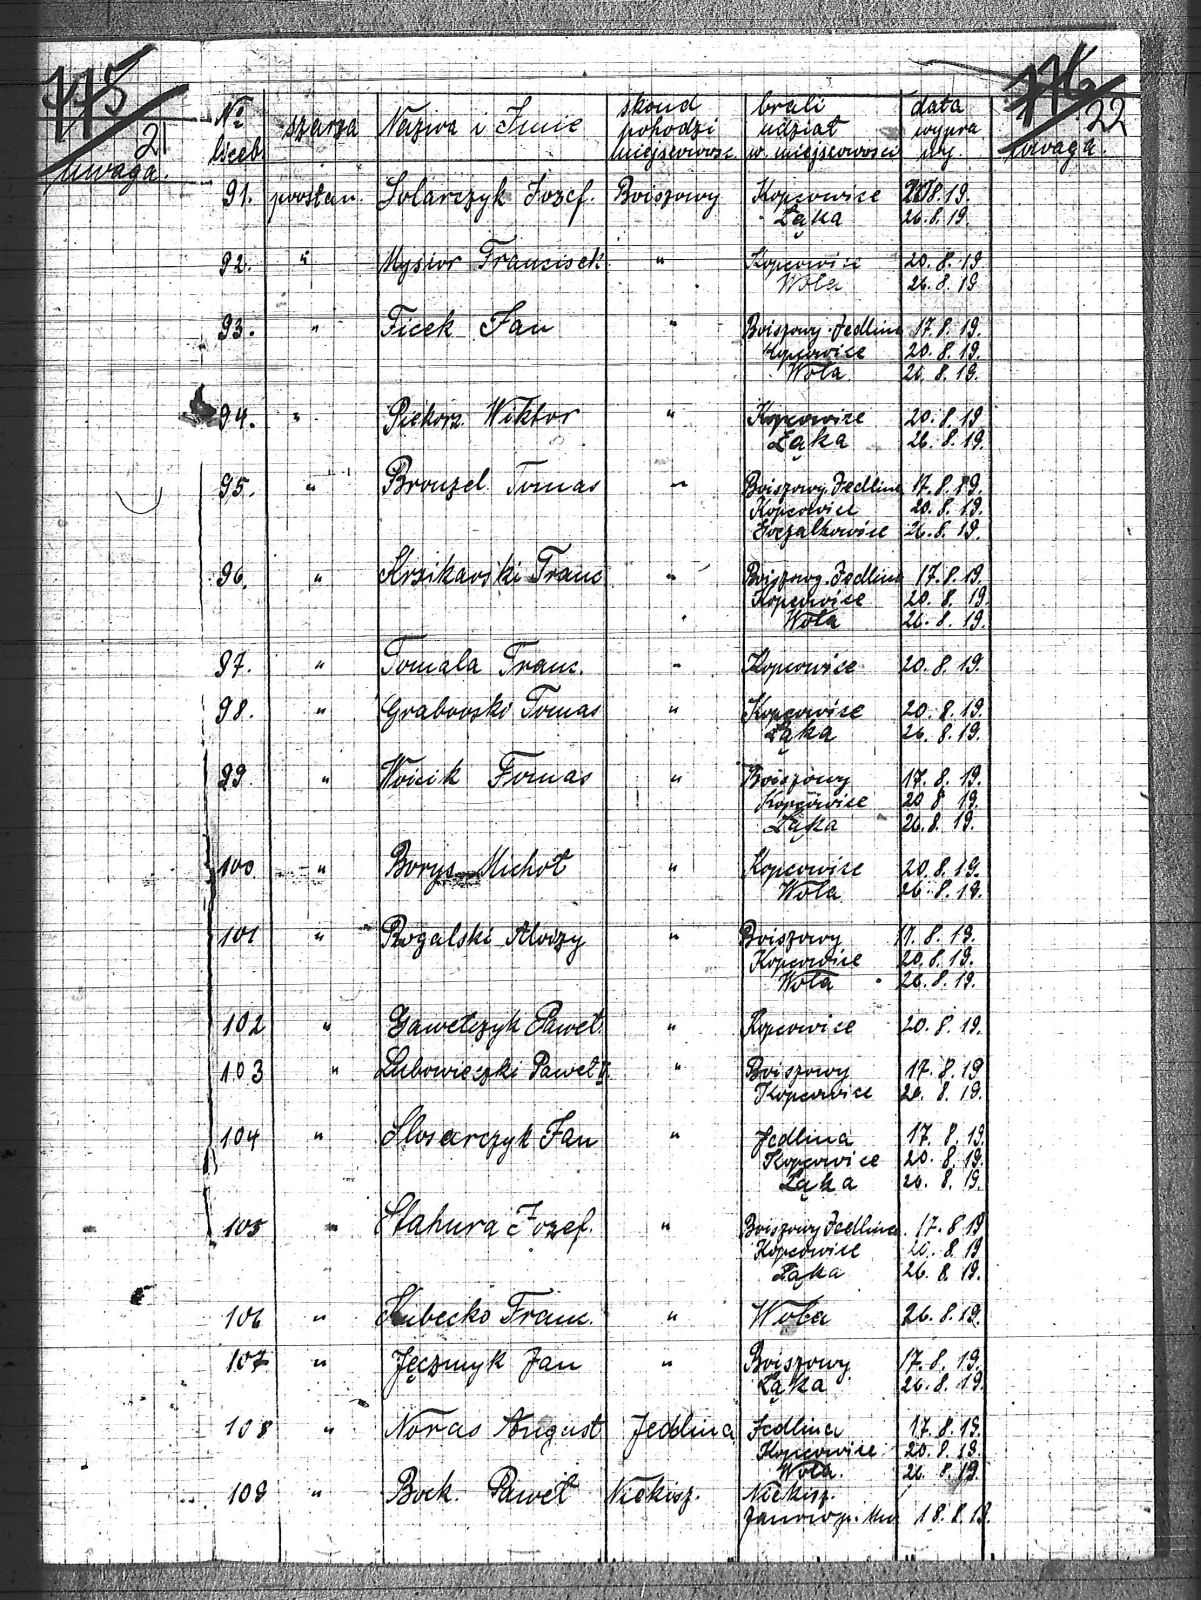 175
21
uwaga.
176
22
uwaga.
№ liczb. szarza Naziva i Imie skoud pohodzi miejscowosc. brali udział w. miejscowosci data wypra wy.
91. powstan. Solarczyk Jozef. Boiszowy Kopcowice 20.8.19.
Łąka 26.8.19.
92. " Mysior Francisek " Kopcowice 20.8.19
Wola 26.8.19
93. " Ficek Jan " Boiszowy. Jedlina 17.8.19.
Kopcowice 20.8.19.
Wola 26.8.19.
94. " Piekorz. Wiktor " Kopcowice 20.8.19
Łąka 26.8.19.
95. " Bronzel Tomas " Boiszowy. Jedlina 17.8.19.
Kopcowice 20.8.19.
Goczalkowice 26.8.19.
96. " Krzikawski Franc " Boiszowy. Jedlina 17.8.19.
Kopcowice 20.8.19.
Wola 26.8.19.
97. " Tomala Franc. " Kopcowice 20.8.19.
98. " Grabowski Tomas " Kopcowice 20.8.19.
Łąka 26.8.19.
99. " Woicik Tomas " Boiszowy 17.8.19.
Kopcowice 20 8 19.
Łąka 26.8.19.
100 " Borys Michoł " Kopcowice 20.8.19.
Wola 26.8.19.
101 " Rogalski Aloizy " Boiszowy 17.8.19.
Kopcowice 20.8.19.
Wola 26.8.19.
102 " Gawelczyk Paweł " Kopcowice 20.8.19.
103 " Lubowieczki Paweł II. " Boiszowy 17.8.19
Kopcowice 20.8.19.
104 " Slosarczyk Jan " Jedlina 17.8.19.
Kopcowice 20.8.19.
Łąka 26.8.19.
105 " Stahura Jozef. " Boiszowy Jedlina 17.8.19
Kopcowice 20.8.19
Łąka 26.8.19.
106 " Kubecko Franc. " Wola 26.8.19.
107 " Jęczmyk Jan " Boiszowy 17.8.19.
Łąka 26.8.19.
108 " Noras August Jedlina Jedlina 17.8.19.
Kopcowice 20.8.19.
Wola. 26.8.19
109 " Bock. Paweł Niekisz. Niekisz.
18.8.19.